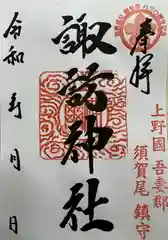 奉拝
上野國 吾妻郡
須賀尾 鎮守
諏訪神社
令和 年 月 日